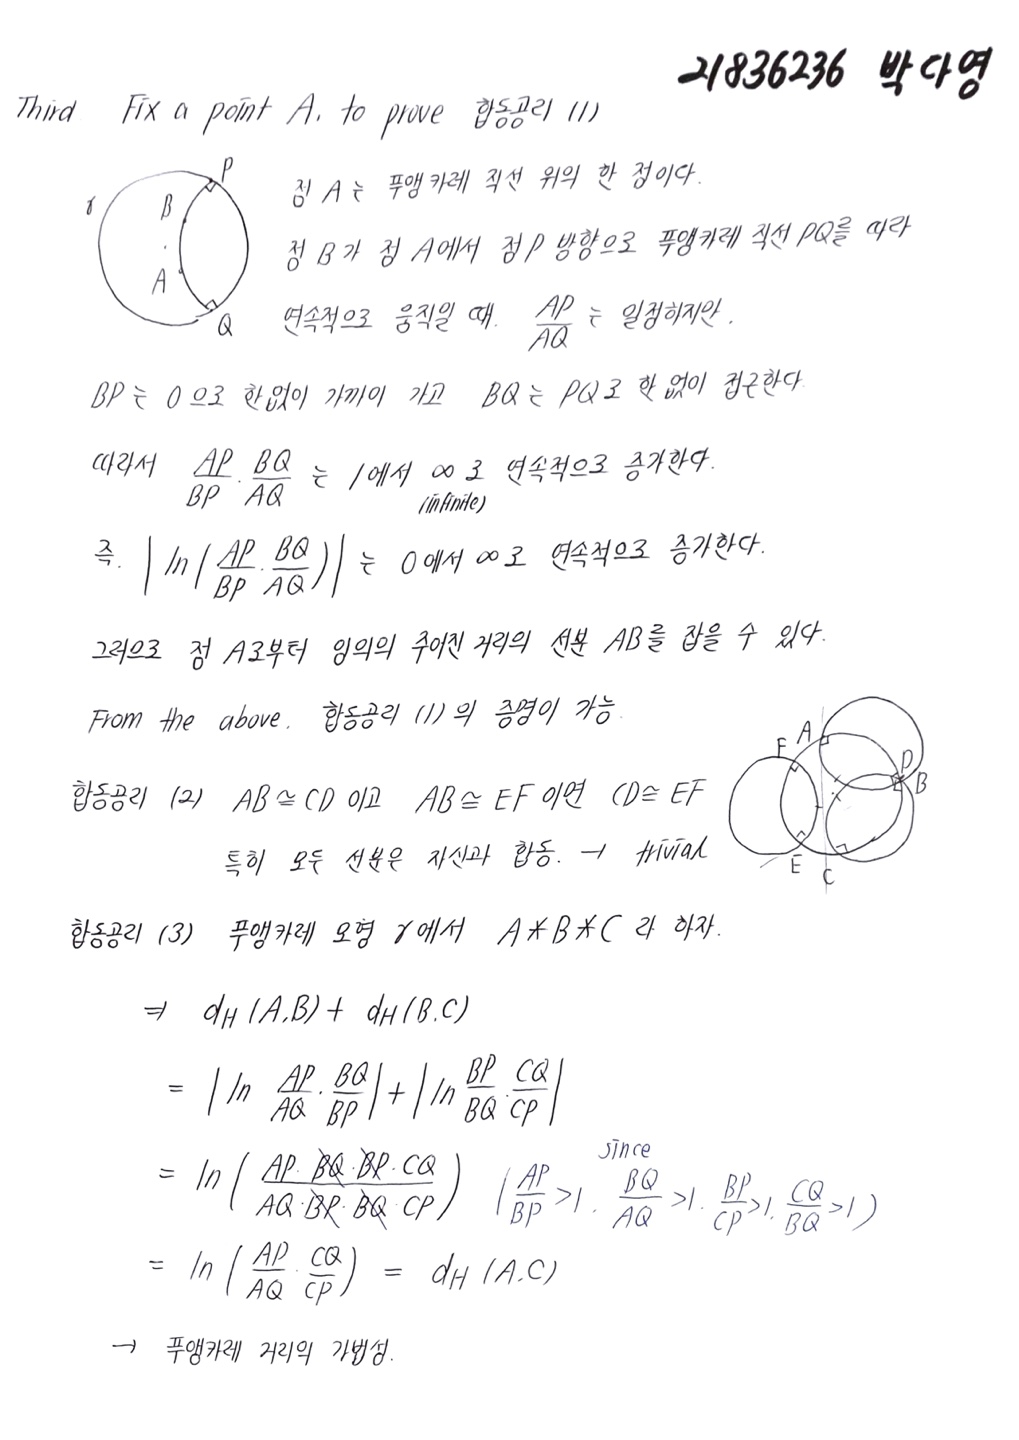 21836236 박다영
Third Fix a point A. to prove 합동공리 (1)
P
γ
B
A
Q
점 A는 푸앵카레 직선 위의 한 점이다.
점 B가 점 A에서 점 P 방향으로 푸앵카레 직선 PQ를 따라
연속적으로 움직일 때. AP/AQ 는 일정하지만.
BP는 0으로 한없이 가까이 가고 BQ는 PQ로 한 없이 접근한다
따라서 AP/BP · BQ/AQ 는 1에서 ∞로 연속적으로 증가한다.
(infinite)
즉. |ln(AP/BP · BQ/AQ)| 는 0에서 ∞로 연속적으로 증가한다.
그러므로 점 A로부터 임의의 주어진 거리의 선분 AB를 잡을 수 있다.
From the above. 합동공리 (1)의 증명이 가능.
합동공리 (2) AB≅CD 이고 AB≅EF이면 CD≅EF
특히 모두 선분은 자신과 합동. → trivial
F
A
D
B
E
C
합동공리 (3) 푸앵카레 모형 γ에서 A*B*C 라 하자.
⇒ dH(A.B) + dH(B.C)
= |ln AP/AQ · BQ/BP| + |ln BP/BQ · CQ/CP|
= ln(AP·BQ·BP·CQ / AQ·BP·BQ·CP) (since AP/BP >1. BQ/AQ >1. BP/CP >1. CQ/BQ >1)
= ln(AP/AQ · CQ/CP) = dH(A.C)
→ 푸앵카레 거리의 가법성.